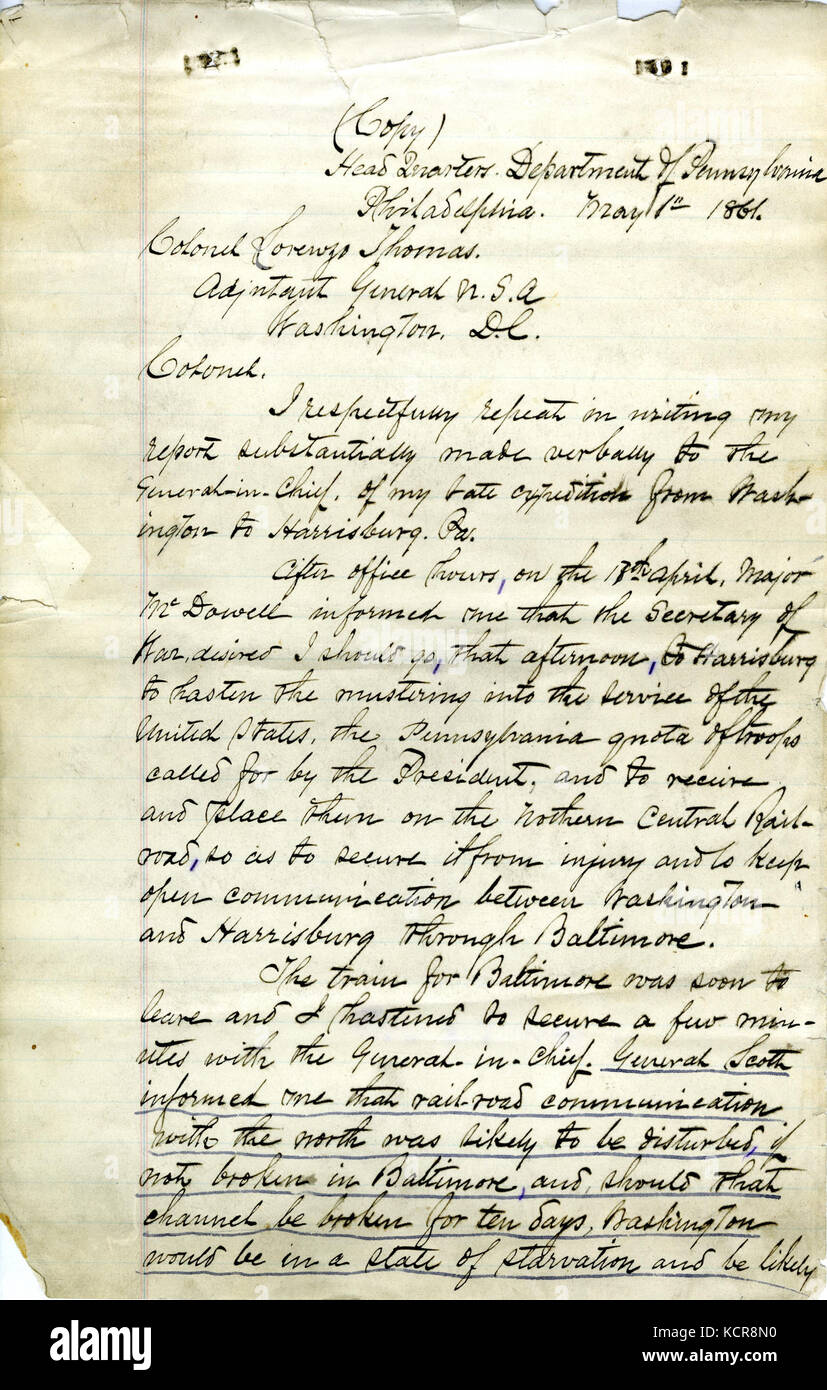 1861 1861
(Copy)
Head Quarters. Department of Pennsylvania
Philadelphia. May 1st 1861.
Colonel Lorenzo Thomas.
Adjutant General U.S.A
Washington. D.C.
Colonel.
I respectfully repeat in writing my
report substantially made verbally to the
General-in-Chief, of my late expedition from Wash-
ington to Harrisburg. Pa.
After office hours, on the 18th April, Major
McDowell informed me that the Secretary of
War, desired I should go, that afternoon, to Harrisburg
to hasten the mustering into the service of the
United States, the Pennsylvania quota of troops
called for by the President, and to receive
and place them on the Nothern Central Rail-
road, so as to secure it from injury and to keep
open communication between Washington
and Harrisburg through Baltimore.
The train for Baltimore was soon to
leave and I hastened to secure a few min-
utes with the General-in-Chief. General Scott
informed me that rail-road communication
with the north was likely to be disturbed, if
not broken in Baltimore, and, should that
channel be broken for ten days, Washington
would be in a state of starvation and be likely
alamy
Image ID: KCR8N0
www.alamy.com